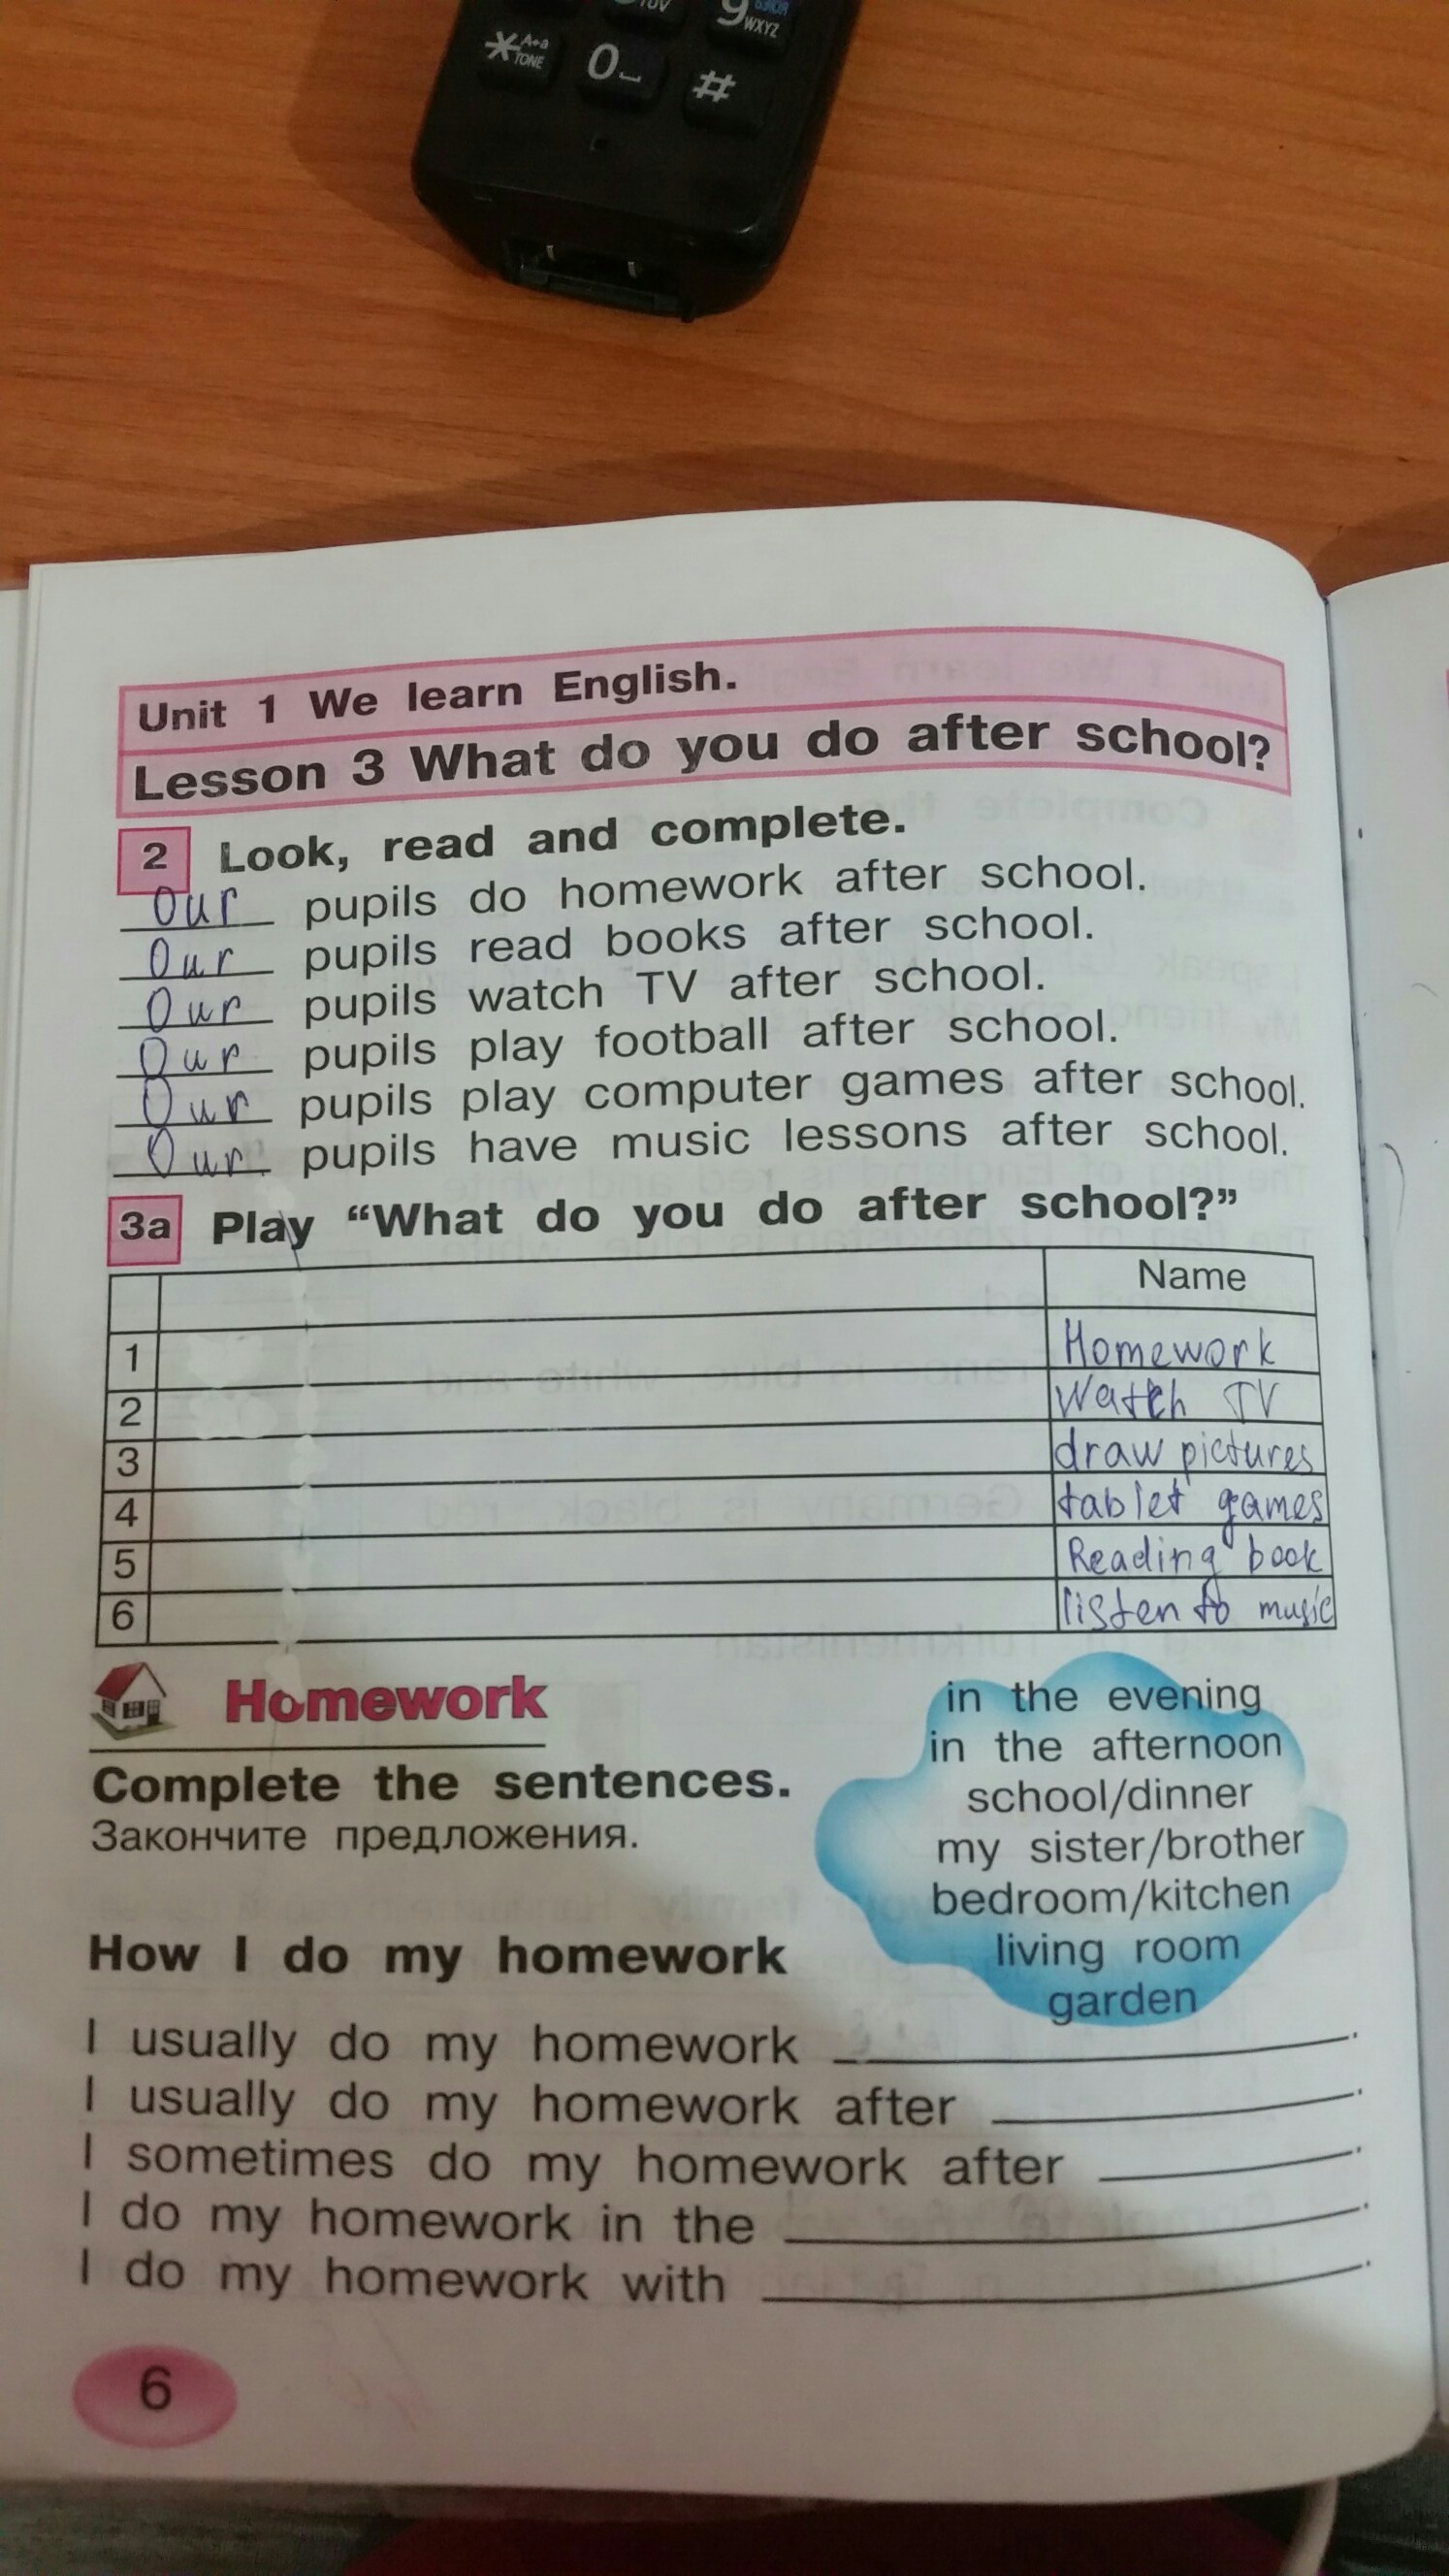 TUV 9 WXYZ
* A↔a TONE 0 #
Unit 1 We learn English.
Lesson 3 What do you do after school?
2 Look, read and complete.
Our pupils do homework after school.
Our pupils read books after school.
Our pupils watch TV after school.
Our pupils play football after school.
Our pupils play computer games after school.
Our pupils have music lessons after school.
3a Play “What do you do after school?”
Name
1 Homework
2 Watch TV
3 draw pictures
4 tablet games
5 Reading book
6 listen to music
Homework
in the evening
in the afternoon
school/dinner
my sister/brother
bedroom/kitchen
living room
garden
Complete the sentences.
Закончите предложения.
How I do my homework
I usually do my homework ____.
I usually do my homework after ____.
I sometimes do my homework after ____.
I do my homework in the ____.
I do my homework with ____.
6